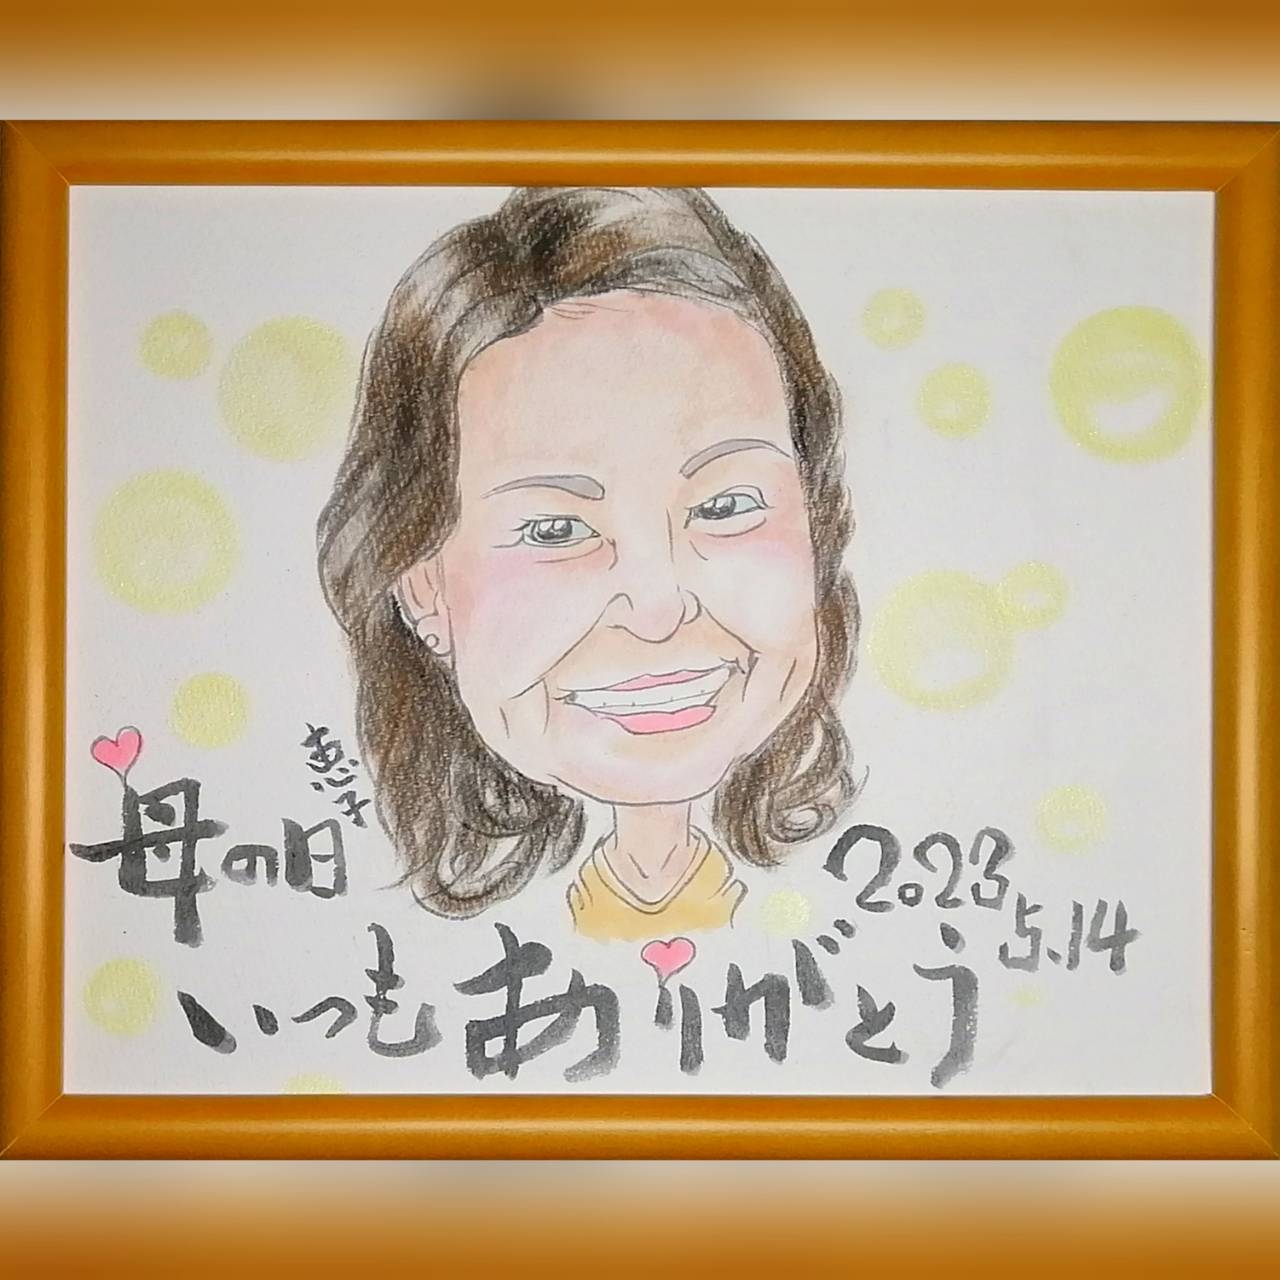 恵子
母の日
2023
5.14
いつもありがとう